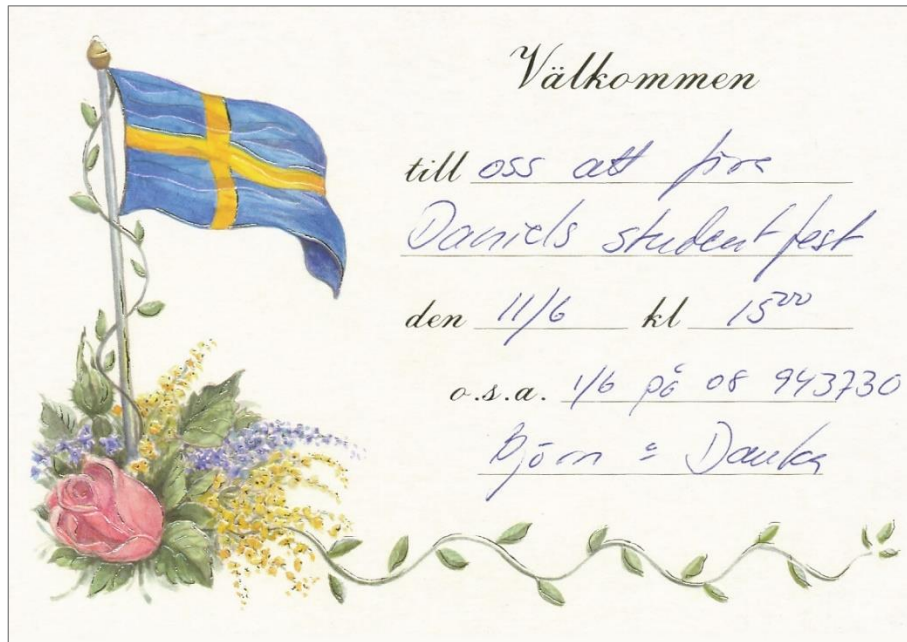 Välkommen
till oss att fira
Daniels studentfest
den 11/6 kl 15⁰⁰
o.s.a. 1/6 på 08 943730
Björn o Danka